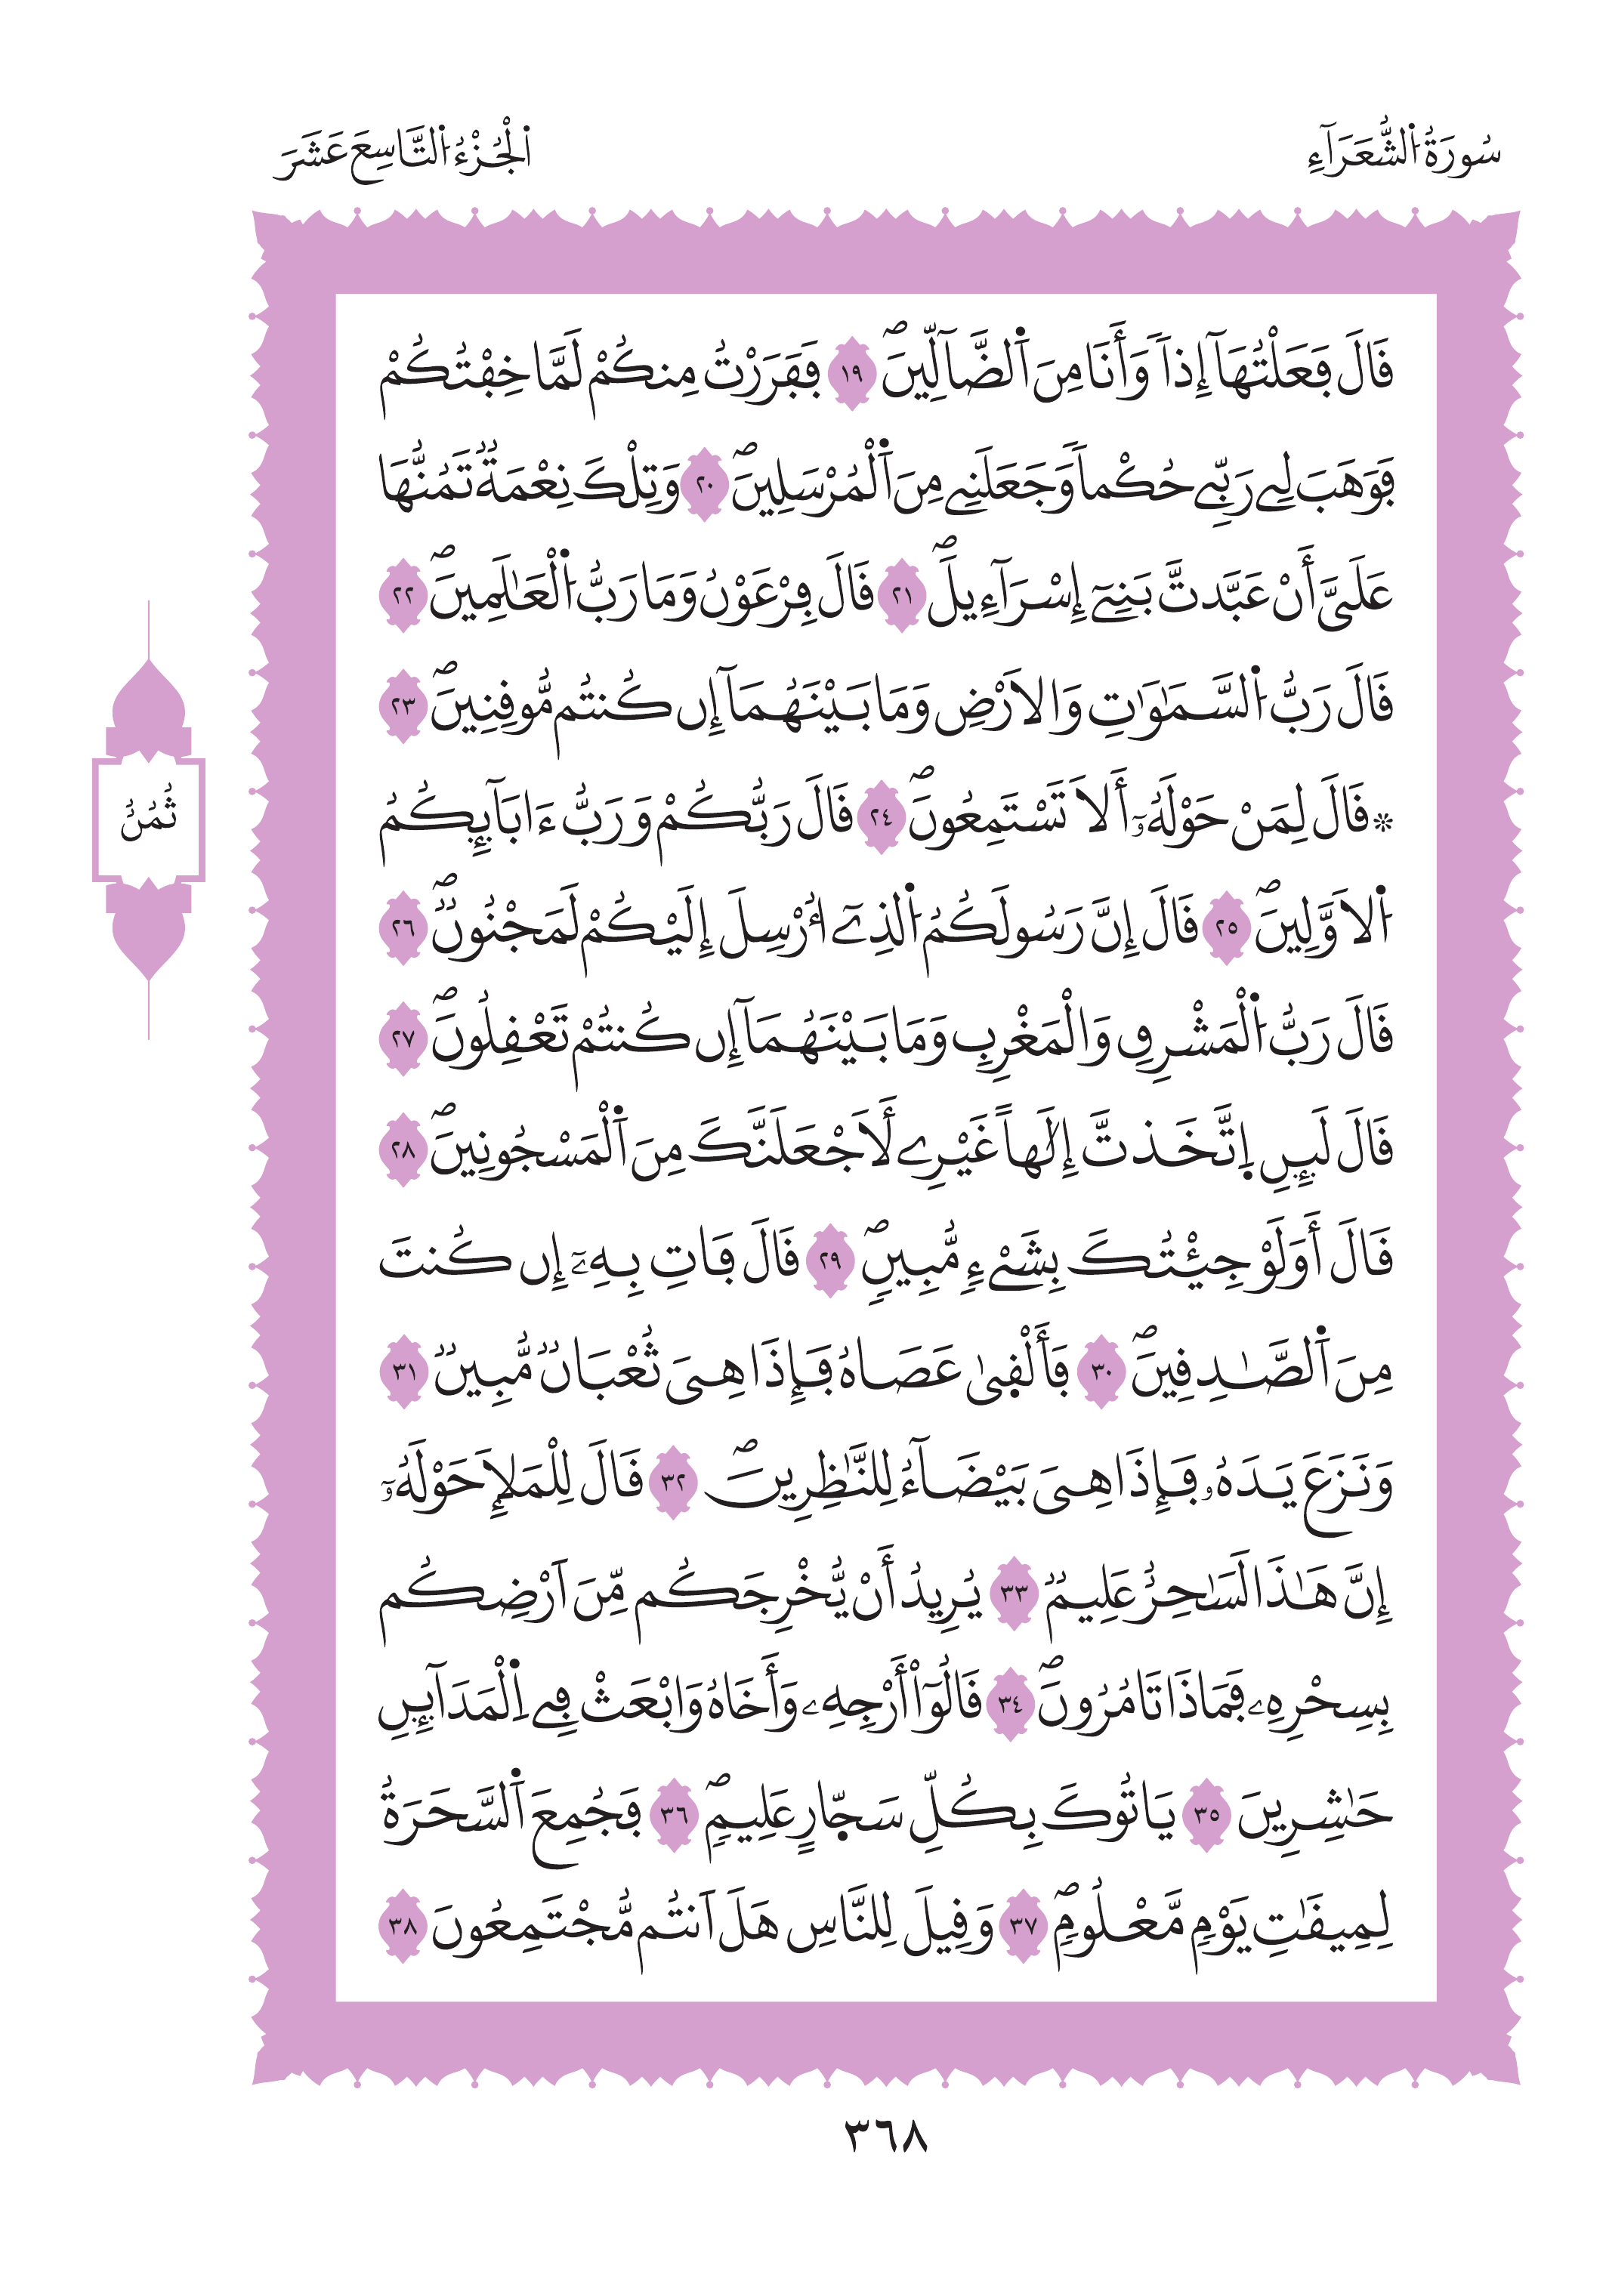 سُورَةُ اُ۬لشُّعَرَآءِ
اَ۬لْجُزْءُ اُ۬لتَّاسِعَ عَشَرَ
قَالَ فَعَلْتُهَآ إِذاٗ وَأَنَا مِنَ اَ۬لضَّآلِّينَۖ ١٩ فَفَرَرْتُ مِنكُمْ لَمَّا خِفْتُكُمْ
فَوَهَبَ لِے رَبِّے حُكْماٗ وَجَعَلَنِے مِنَ اَ۬لْمُرْسَلِينَۖ ٢٠ وَتِلْكَ نِعْمَةٞ تَمُنُّهَا
عَلَىَّ أَنْ عَبَّدتَّ بَنِےٓ إِسْرَآءِيلَۖ ٢١ قَالَ فِرْعَوْنُ وَمَا رَبُّ اُ۬لْعَٰلَمِينَۖ ٢٢
قَالَ رَبُّ اُ۬لسَّمَٰوَٰتِ وَالَارْضِ وَمَا بَيْنَهُمَآ إِن كُنتُم مُّوقِنِينَۖ ٢٣
۞قَالَ لِمَنْ حَوْلَهُۥٓ أَلَا تَسْتَمِعُونَۖ ٢٤ قَالَ رَبُّكُمْ وَرَبُّ ءَابَآئِكُمُ
اُ۬لَاوَّلِينَۖ ٢٥ قَالَ إِنَّ رَسُولَكُمُ اُ۬لذِےٓ أُرْسِلَ إِلَيْكُمْ لَمَجْنُونٞۖ ٢٦
قَالَ رَبُّ اُ۬لْمَشْرِقِ وَالْمَغْرِبِ وَمَا بَيْنَهُمَآ إِن كُنتُمْ تَعْقِلُونَۖ ٢٧
قَالَ لَئِنِ اِ۪تَّخَذتَّ إِلَٰهاً غَيْرِے لَأَجْعَلَنَّكَ مِنَ اَ۬لْمَسْجُونِينَۖ ٢٨
قَالَ أَوَلَوْ جِئْتُكَ بِشَےْءٖ مُّبِينٖۖ ٢٩ قَالَ فَاتِ بِهِۦٓ إِن كُنتَ
مِنَ اَ۬لصَّٰدِقِينَۖ ٣٠ فَأَلْق۪ىٰ عَصَاهُ فَإِذَا هِىَ ثُعْبَانٞ مُّبِينٞ ٣١
وَنَزَعَ يَدَهُۥ فَإِذَا هِىَ بَيْضَآءُ لِلنَّٰظِرِينَۖ ٣٢ قَالَ لِلْمَلَإِ حَوْلَهُۥٓ
إِنَّ هَٰذَا لَسَٰحِرٌ عَلِيمٞ ٣٣ يُرِيدُ أَنْ يُّخْرِجَكُم مِّنَ اَرْضِكُم
بِسِحْرِهِۦ فَمَاذَا تَامُرُونَۖ ٣٤ قَالُوٓاْ أَرْجِهِۦ وَأَخَاهُ وَابْعَثْ فِے اِ۬لْمَدَآئِنِ
حَٰشِرِينَ ٣٥ يَاتُوكَ بِكُلِّ سَحّ۪ارٍ عَلِيمٖۖ ٣٦ فَجُمِعَ اَ۬لسَّحَرَةُ
لِمِيقَٰتِ يَوْمٖ مَّعْلُومٖۖ ٣٧ وَقِيلَ لِلنَّاسِ هَلَ اَنتُم مُّجْتَمِعُونَ ٣٨
ثُمُنُ
٣٦٨